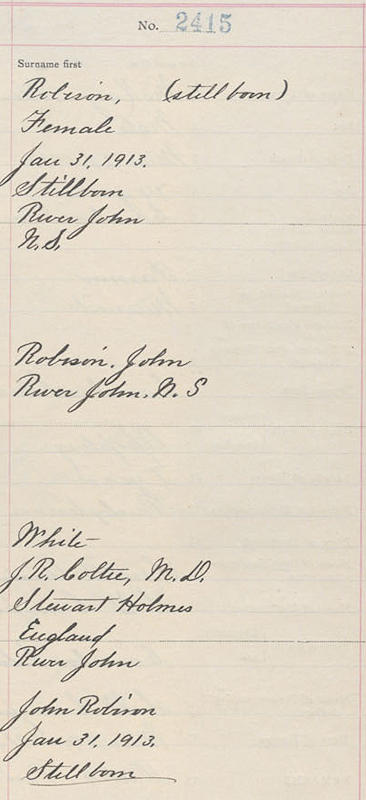 No. 2415
Surname first
Robison, (stillborn)
Female
Jan 31, 1913.
Stillborn
River John
N.S.
Robison. John
River John, N. S
White
J.R. Collie, M.D.
Stewart Holmes
England
River John
John Robison
Jan 31, 1913.
Stillborn